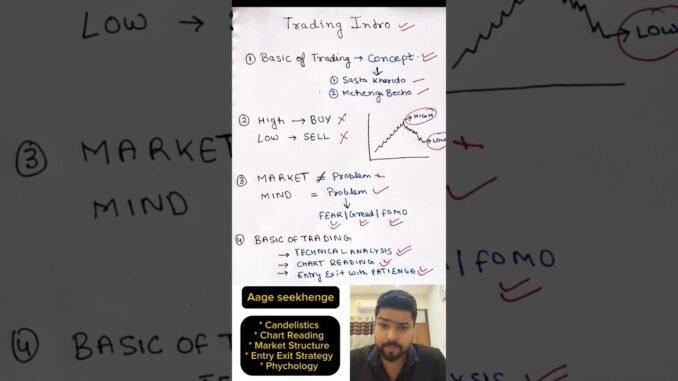 Trading Intro
① Basic of Trading → Concept
① Sasta Kharido
② Mehenga Becho
② High → BUY ✗
LOW → SELL ✗
HIGH
LOW
③ MARKET ≠ Problem ✗
MIND = Problem ✓
FEAR/Greed/FOMO
④ BASIC OF TRADING
→ TECHNICAL ANALYSIS
→ CHART READING
→ Entry Exit with PATIENCE
Aage seekhenge
* Candelistics
* Chart Reading
* Market Structure
* Entry Exit Strategy
* Phychology
LOW →
③ MARKET
MIND
④ BASIC OF T
LOW
/FOMO